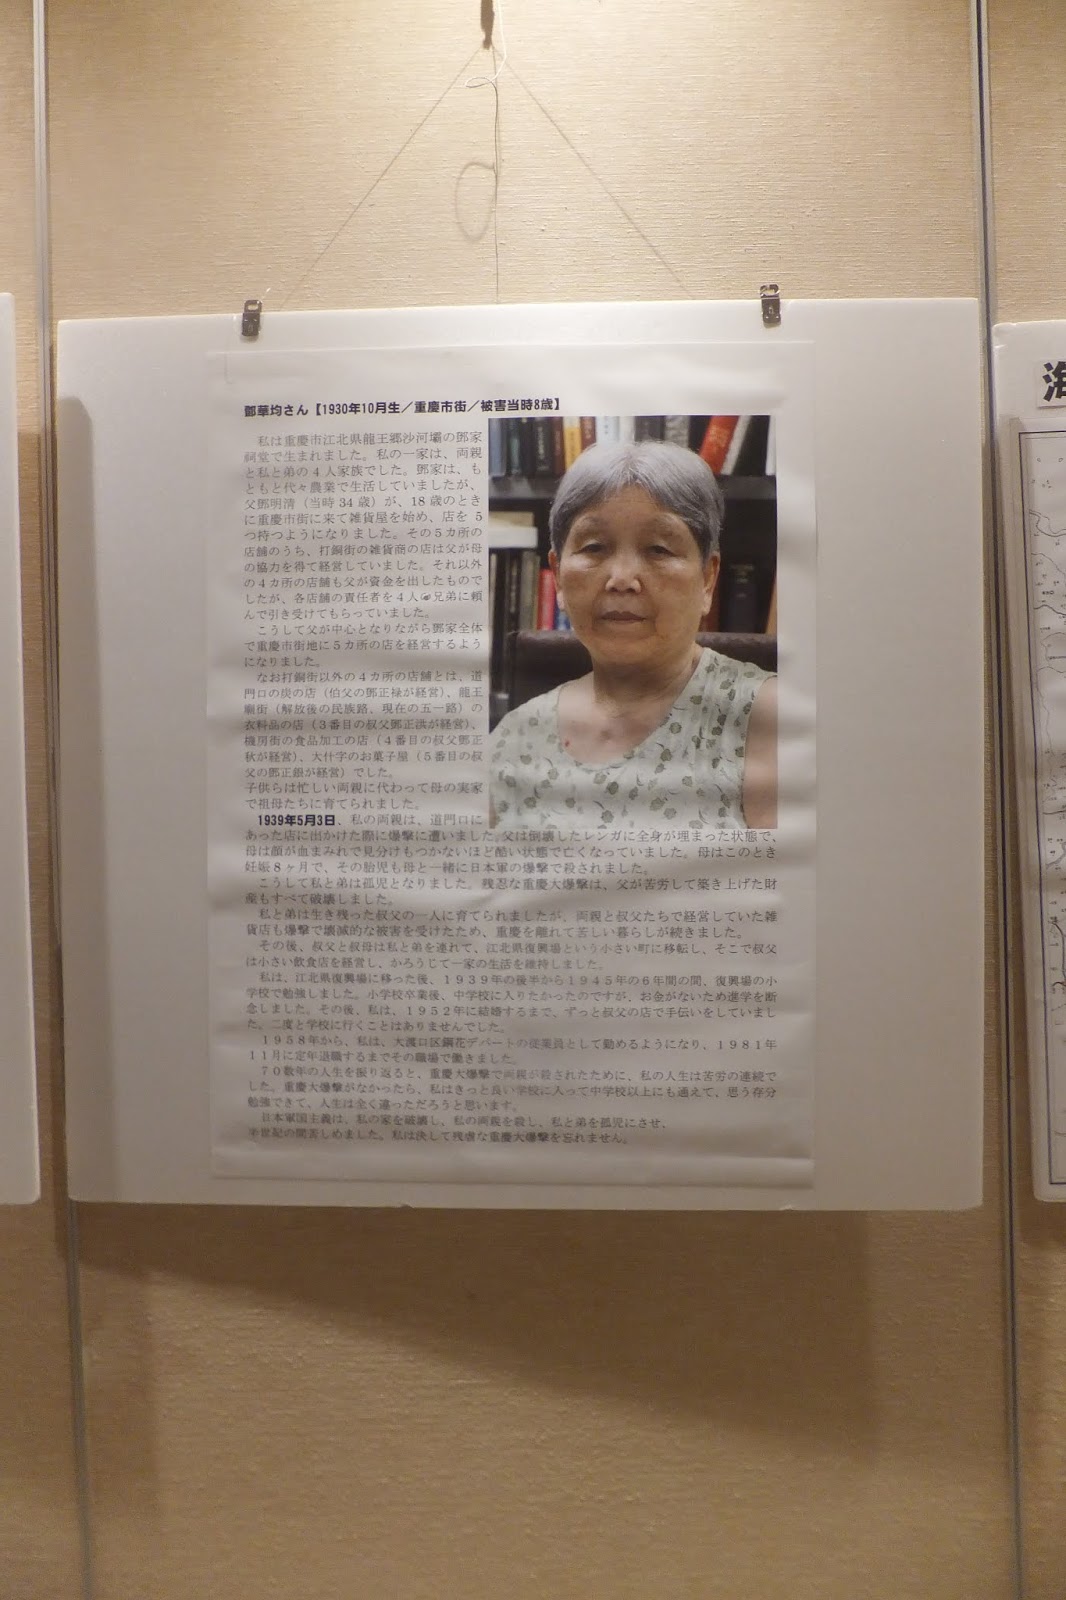 鄧華均さん【1930年10月生／重慶市街／被害当時8歳】
私は重慶市江北県龍王郷沙河壩の鄧家
祠堂で生まれました。私の一家は、両親
と私と弟の４人家族でした。鄧家は、も
ともと代々農業で生活していましたが、
父鄧明清（当時34歳）が、18歳のとき
に重慶市街に来て雑貨屋を始め、店を５
つ持つようになりました。その５カ所の
店舗のうち、打銅街の雑貨商の店は父が母
の協力を得て経営していました。それ以外
の４カ所の店舗も父が資金を出したもので
したが、各店舗の責任者を４人の兄弟に頼
んで引き受けてもらっていました。
こうして父が中心となりながら鄧家全体
で重慶市街地に５カ所の店を経営するよう
になりました。
なお打銅街以外の４カ所の店舗とは、道
門口の炭の店（伯父の鄧正禄が経営）、龍王
廟街（解放後の民族路、現在の五一路）の
衣料品の店（３番目の叔父鄧正洪が経営）、
機房街の食品加工の店（４番目の叔父鄧正
秋が経営）、大什字のお菓子屋（５番目の叔
父の鄧正銀が経営）でした。
子供らは忙しい両親に代わって母の実家
で祖母たちに育てられました。
1939年5月3日、私の両親は、道門口に
あった店に出かけた際に爆撃に遭いました。父は倒壊したレンガに全身が埋まった状態で、
母は顔が血まみれで見分けもつかないほど酷い状態で亡くなっていました。母はこのとき
妊娠８ヶ月で、その胎児も母と一緒に日本軍の爆撃で殺されました。
こうして私と弟は孤児となりました。残忍な重慶大爆撃は、父が苦労して築き上げた財
産もすべて破壊しました。
私と弟は生き残った叔父の一人に育てられましたが、両親と叔父たちで経営していた雑
貨店も爆撃で壊滅的な被害を受けたため、重慶を離れて苦しい暮らしが続きました。
その後、叔父と叔母は私と弟を連れて、江北県復興場という小さい町に移転し、そこで叔父
は小さい飲食店を経営し、かろうじて一家の生活を維持しました。
私は、江北県復興場に移った後、１９３９年の後半から１９４５年の６年間の間、復興場の小
学校で勉強しました。小学校卒業後、中学校に入りたかったのですが、お金がないため進学を断
念しました。その後、私は、１９５２年に結婚するまで、ずっと叔父の店で手伝いをしていまし
た。二度と学校に行くことはありませんでした。
１９５８年から、私は、大渡口区鋼花デパートの従業員として勤めるようになり、１９８１年
１１月に定年退職するまでその職場で働きました。
７０数年の人生を振り返ると、重慶大爆撃で両親が殺されたために、私の人生は苦労の連続で
した。重慶大爆撃がなかったら、私はきっと良い学校に入って中学校以上にも通えて、思う存分
勉強できて、人生は全く違っただろうと思います。
日本軍国主義は、私の家を破壊し、私の両親を殺し、私と弟を孤児にさせ、
半世紀の間苦しめました。私は決して残虐な重慶大爆撃を忘れません。
海